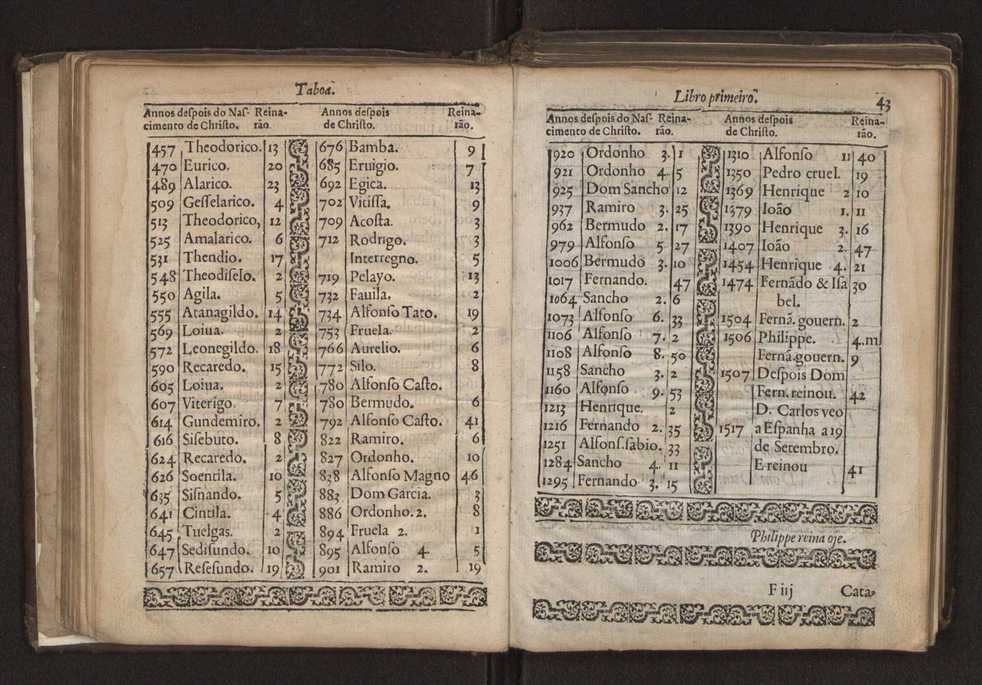 Taboa.
Annos despois do Nas- Reina-
cimento de Christo. rão
457 Theodorico. 13
470 Eurico. 20
489 Alarico. 23
509 Gesselarico. 4
513 Theodorico, 12
525 Amalarico. 6
531 Thendio. 17
548 Theodiselo. 2
550 Agila. 5
555 Atanagildo. 14
569 Loiua. 2
572 Leonegildo. 18
590 Recaredo. 15
605 Loiua. 2
607 Viterigo. 7
614 Gundemiro. 2
616 Sisebuto. 8
624 Recaredo. 2
626 Soentila. 10
635 Sisnando. 5
641 Cintila. 4
645 Tuelgas. 2
647 Sedisundo. 10
657 Resesundo. 19
Annos despois Reina-
de Christo. rão.
676 Bamba. 9
685 Eruigio. 7
692 Egica. 13
702 Vitissa. 9
709 Acosta. 3
712 Rodrigo. 3
Interregno. 5
719 Pelayo. 13
732 Fauila. 2
734 Alfonso Tato. 19
753 Fruela. 2
766 Aurelio. 6
772 Silo. 8
780 Alfonso Casto.
780 Bermudo. 6
792 Alfonso Casto. 41
822 Ramiro. 6
827 Ordonho. 10
838 Alfonso Magno 46
883 Dom Garcia. 3
886 Ordonho. 2. 8
894 Fruela 2. 1
895 Alfonso 4. 5
901 Ramiro 2. 19
Libro primeiro. 43
Annos despois do Nas- Reina-
cimento de Christo. rão.
920 Ordonho 3. 1
921 Ordonho 4. 5
925 Dom Sancho 12
937 Ramiro 3. 25
962 Bermudo 2. 17
979 Alfonso 5 27
1006 Bermudo 3. 10
1017 Fernando. 47
1064 Sancho 2. 6
1073 Alfonso 6. 33
1106 Alfonso 7. 2
1108 Alfonso 8. 50
1158 Sancho 3. 2
1160 Alfonso 9. 53
1213 Henrique. 2
1216 Fernando 2. 35
1251 Alfons. sabio. 33
1284 Sancho 4. 11
1295 Fernando 3. 15
Annos despois Reina-
de Christo. rão.
1310 Alfonso 11 40
1350 Pedro cruel. 19
1369 Henrique 2 10
1379 Ioão 1. 11
1390 Henrique 3. 16
1407 Ioão 2. 47
1454 Henrique 4. 21
1474 Fernãdo & Isa 30
bel.
1504 Fernã. gouern. 2
1506 Philippe. 4.m
Fernã. gouern. 9
1507 Despois Dom
Fern. reinou. 42
D. Carlos veo
1517 a Espanha a 19
de Setembro.
E reinou 41
Philippe reina oje.
F iij Cata-